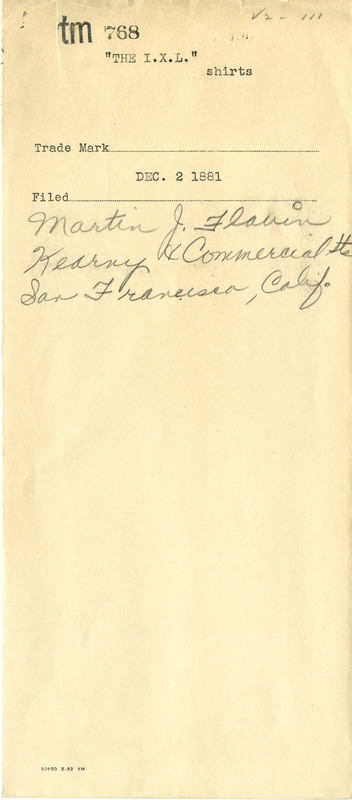 V2- 111
tm 768
"THE I.X.L."
shirts
Trade Mark
DEC. 2 1881
Filed
Martin J. Flavin
Kearny & Commercial Sts
San Francisco, Calif.
92680 2-32 1M